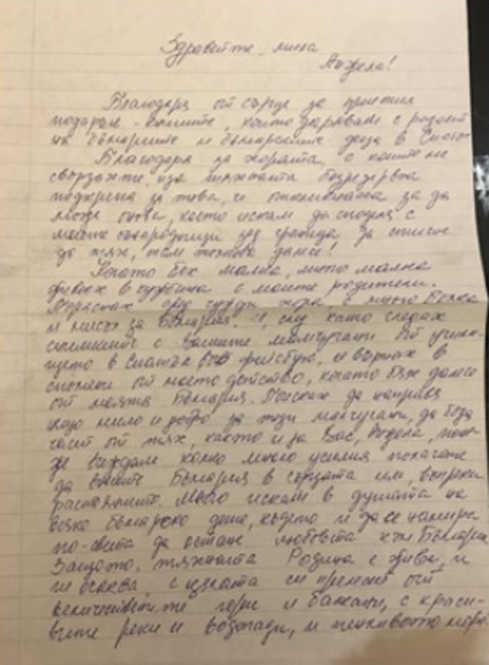 Здравейте, мила
Анжела!
Благодаря от сърце за приетия
подарък - книгите, които зарявам с радост
на българите и българските деца в Сиатъл
Благодаря на хората, с които ме
свързахте, и за тяхната безрезервна
подкрепа за това, че откликнаха за да
може онова, което искам да споделя с
моите сънародници зад граница да стигне
до тях, там толкова далеч!
Когато бях малка, много малка
живях в чужбина с моите родители.
Пораснах сред чужди хора, с много болка
и мисъл за България. И, след като гледах
снимките с вашите малчугани от учили-
щето в Сиатъл във фейсбук, се върнах в
спомени от моето детство, когато бях далеч
от моята България. Поисках да направя
нещо мило и добро за тези малчугани, да бъда
част от тях, както и за Вас, Анжела, поне-
же виждам колко много усилия полагате
да бъде България в сърцата им, въпреки
разстоянието. Много искам в душата на
всяко българско дете, където и да се намира
по света да остане любовта към България
Защото, тяхната Родина е жива, и
ги очаква, с цялата си прелест от
величествените гори и балкани, с краси-
вите реки и водопади, и